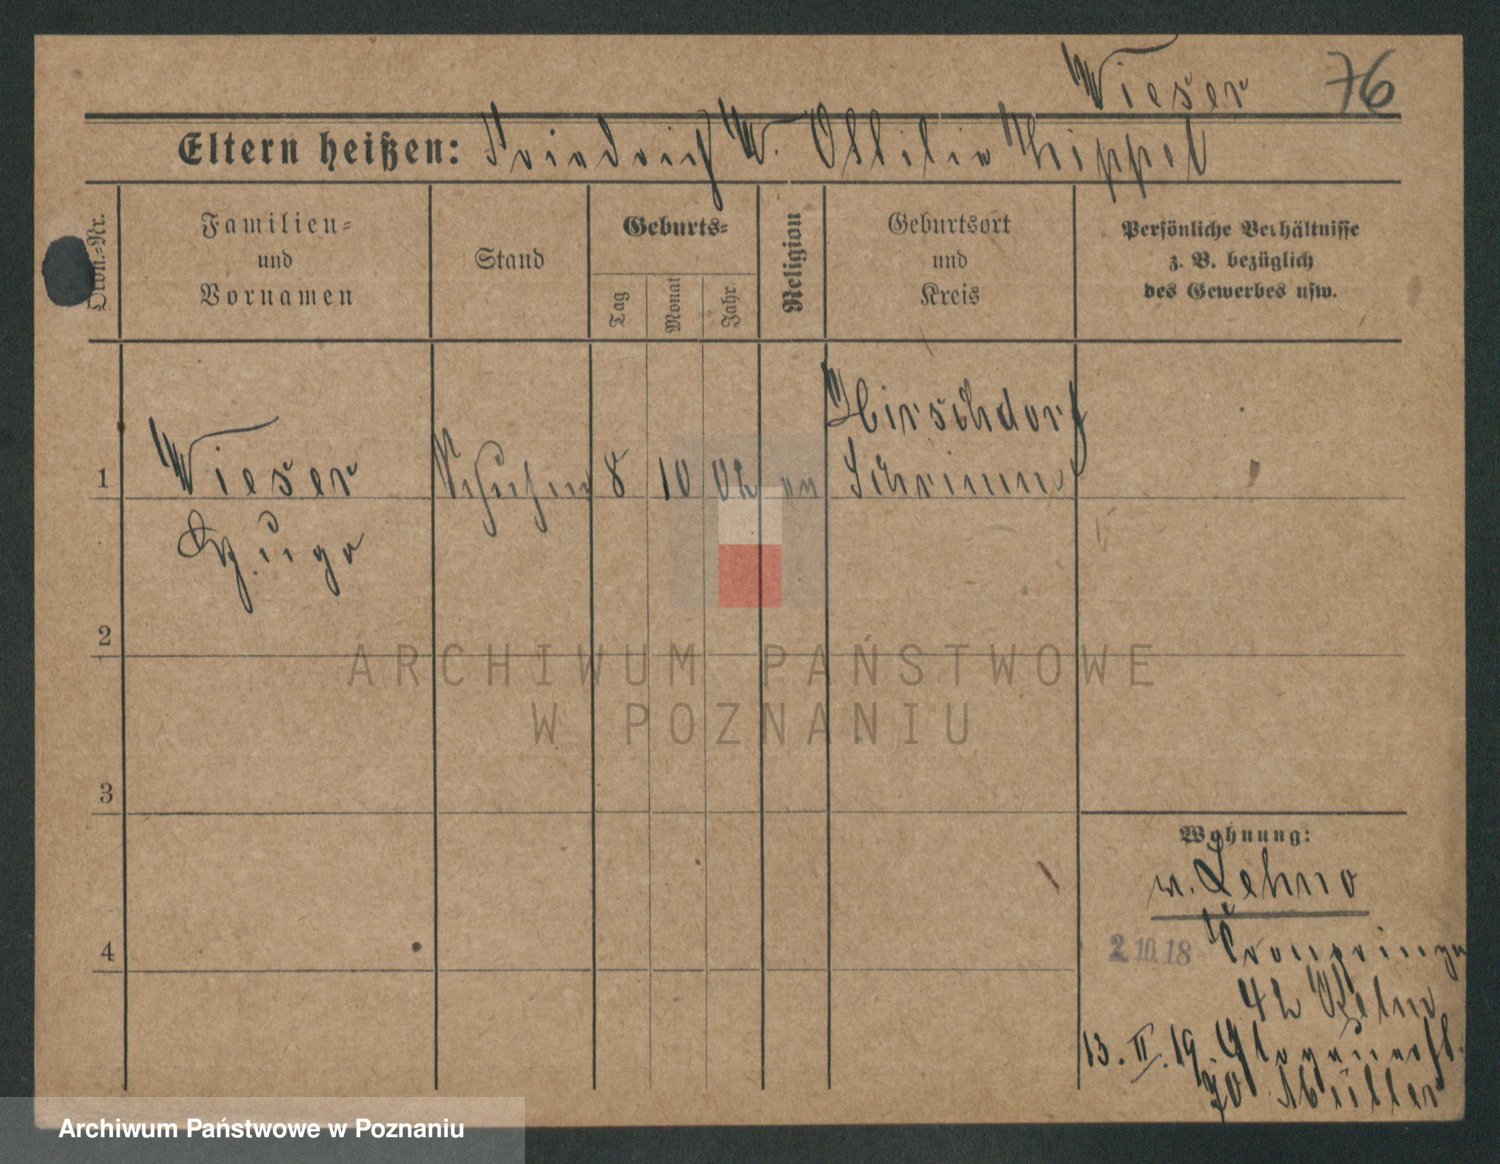 Wieser 76
Eltern heißen: Friedrich W. Ottilie Hippel
Ordn.-Nr.
Familien-
und
Vornamen
Stand
Geburts-
Tag
Monat
Jahr
Religion
Geburtsort
und
Kreis
Persönliche Verhältnisse
z. B. bezüglich
des Gewerbes usw.
Hirschdorf
1 Wieser 8 10 02 ev Schrimm
Hugo
2
3
4
Wohnung:
v. Lehno
2.10.18 Kronprinz
42
13.II.19. Glogauerst.
70 Müller
ARCHIWUM PAŃSTWOWE
W POZNANIU
Archiwum Państwowe w Poznaniu